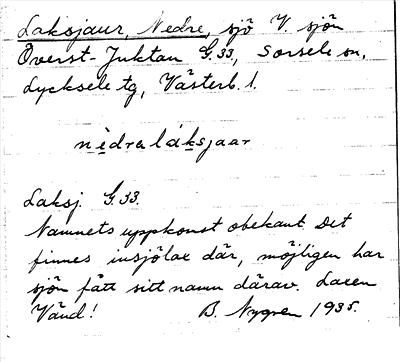 Laksjaur, Nedre, sjö V. sjön
Överst-Juktan G.33, Sorsele sn,
Lycksele tg, Västerb. l.
nèdraláksjaar
Laksj. G.33.
Namnets uppkomst obekant. Det
finnes insjölax där, möjligen har
sjön fått sitt namn därav. Laxen
Vänd! B. Nygren 1935.